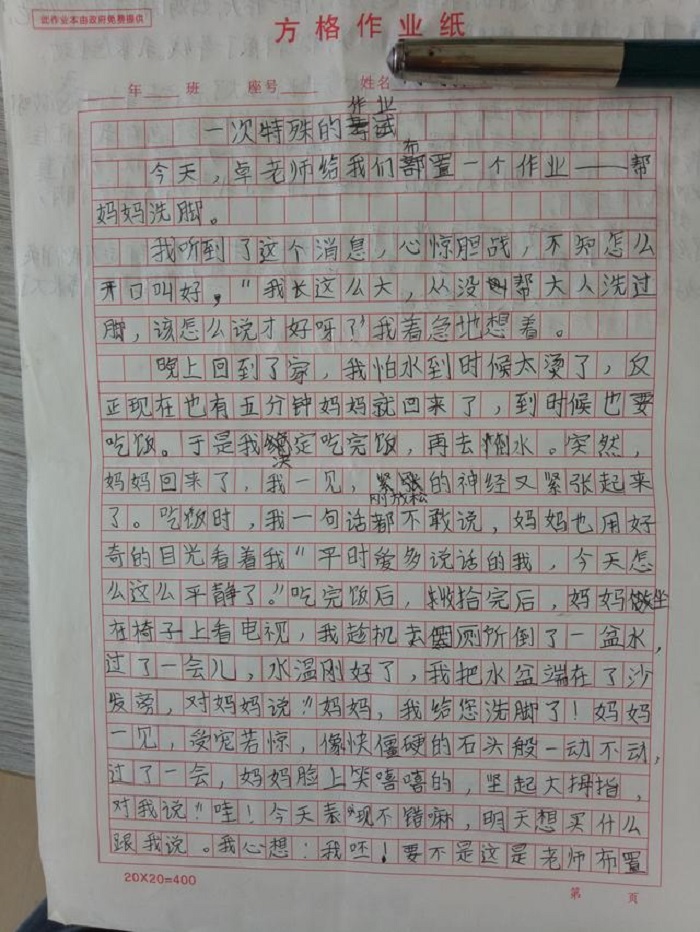 此作业本由政府免费提供
方格作业纸
年 班 座号 姓名
作业
一次特殊的考试
布
今天,卓老师给我们部置一个作业——帮
妈妈洗脚。
我听到了这个消息,心惊胆战,不知怎么
开口叫好,“我长这么大,从没帮大人洗过
脚,该怎么说才好呀?”我着急地想着。
晚上回到了家,我怕水到时候太烫了,反
正现在也有五分钟妈妈就回来了,到时候也要
吃饭。于是我定吃完饭,再去水。突然,
决
妈妈回来了,我一见,紧张的神经又紧张起来
刚放松
了。吃饭时,我一句话都不敢说,妈妈也用好
奇的目光看着我“平时爱多说话的我,今天怎
么这么平静了。”吃完饭后,收拾完后,妈妈坐
在椅子上看电视,我趁机去厕所倒了一盆水,
过了一会儿,水温刚好了,我把水盆端在了沙
发旁,对妈妈说:“妈妈,我给您洗脚了!妈妈
一见,受宠若惊,像快僵硬的石头般一动不动,
过了一会,妈妈脸上笑嘻嘻的,竖起大拇指,
对我说:“哇!今天表现不错嘛,明天想买什么
跟我说。我心想:我呸!要不是这是老师布置
20X20=400
第 页